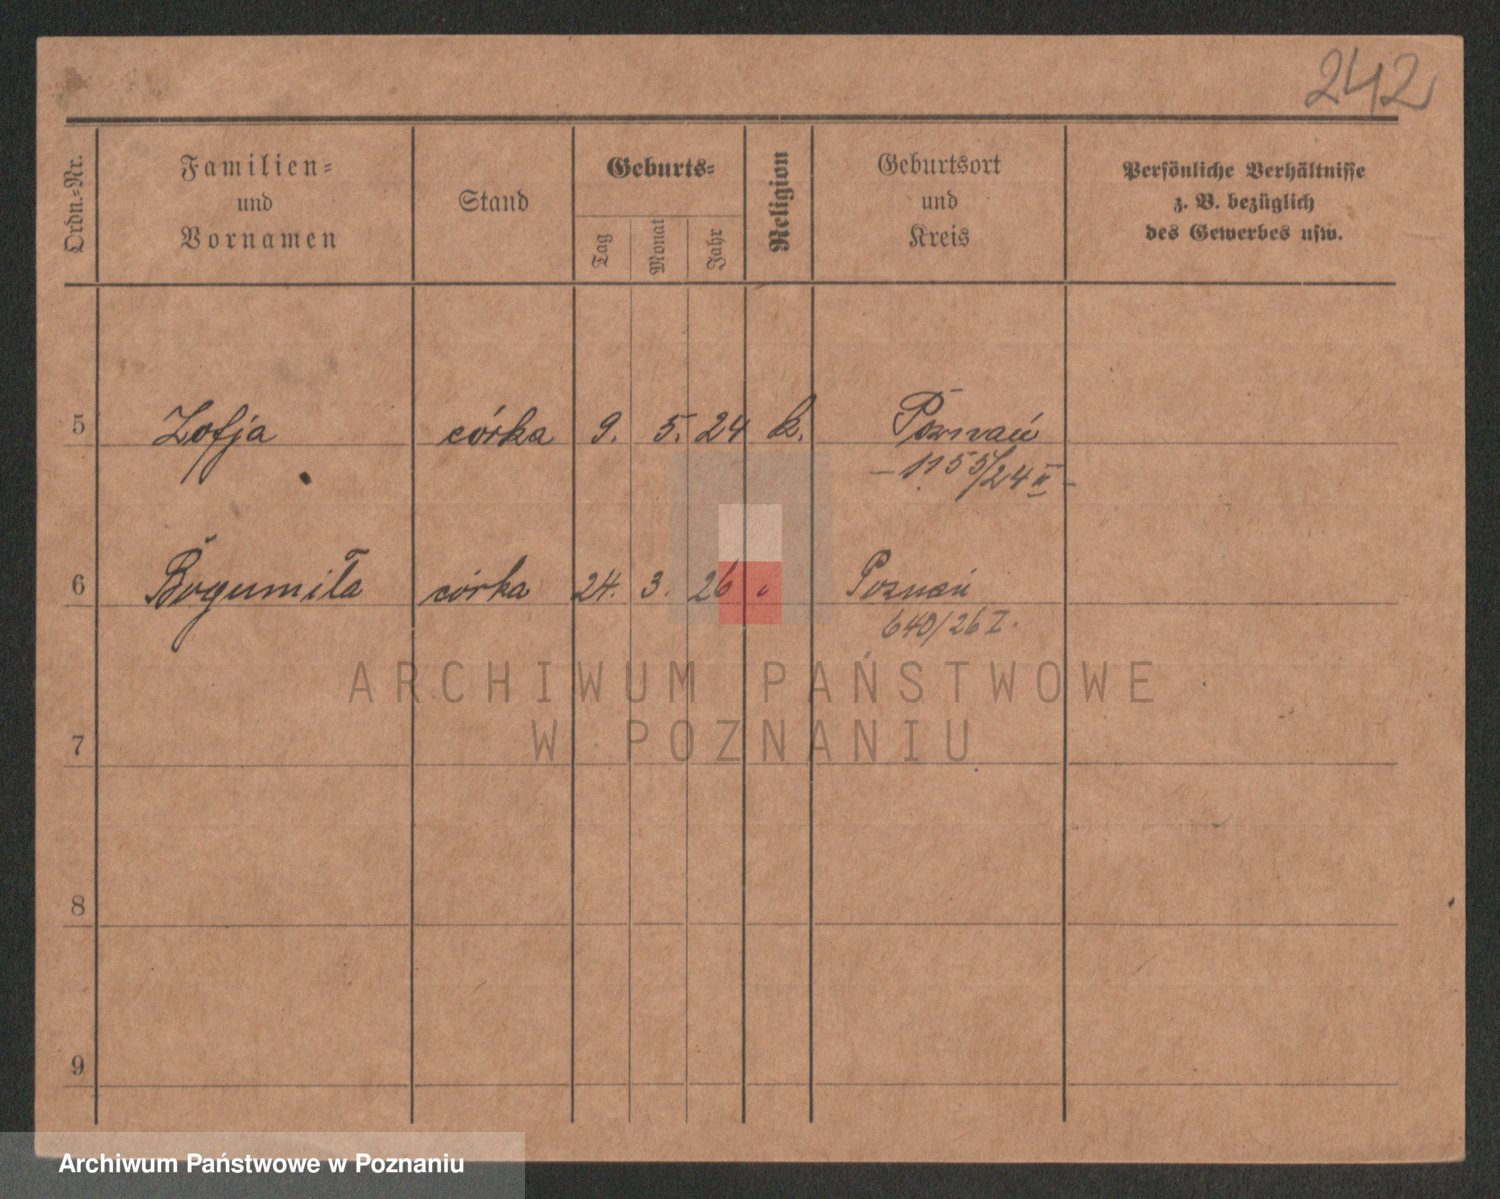 242
Ordn.-Nr.
Familien-
und
Vornamen
Stand
Geburts-
Tag
Monat
Jahr
Religion
Geburtsort
und
Kreis
Persönliche Verhältnisse
z. B. bezüglich
des Gewerbes usw.
5 Zofja córka 9. 5. 24 k. Poznań
- 1155/24 II -
6 Bogumiła córka 24. 3. 26 Poznań
640/26 I.
7
8
9
ARCHIWUM PAŃSTWOWE
W POZNANIU
Archiwum Państwowe w Poznaniu